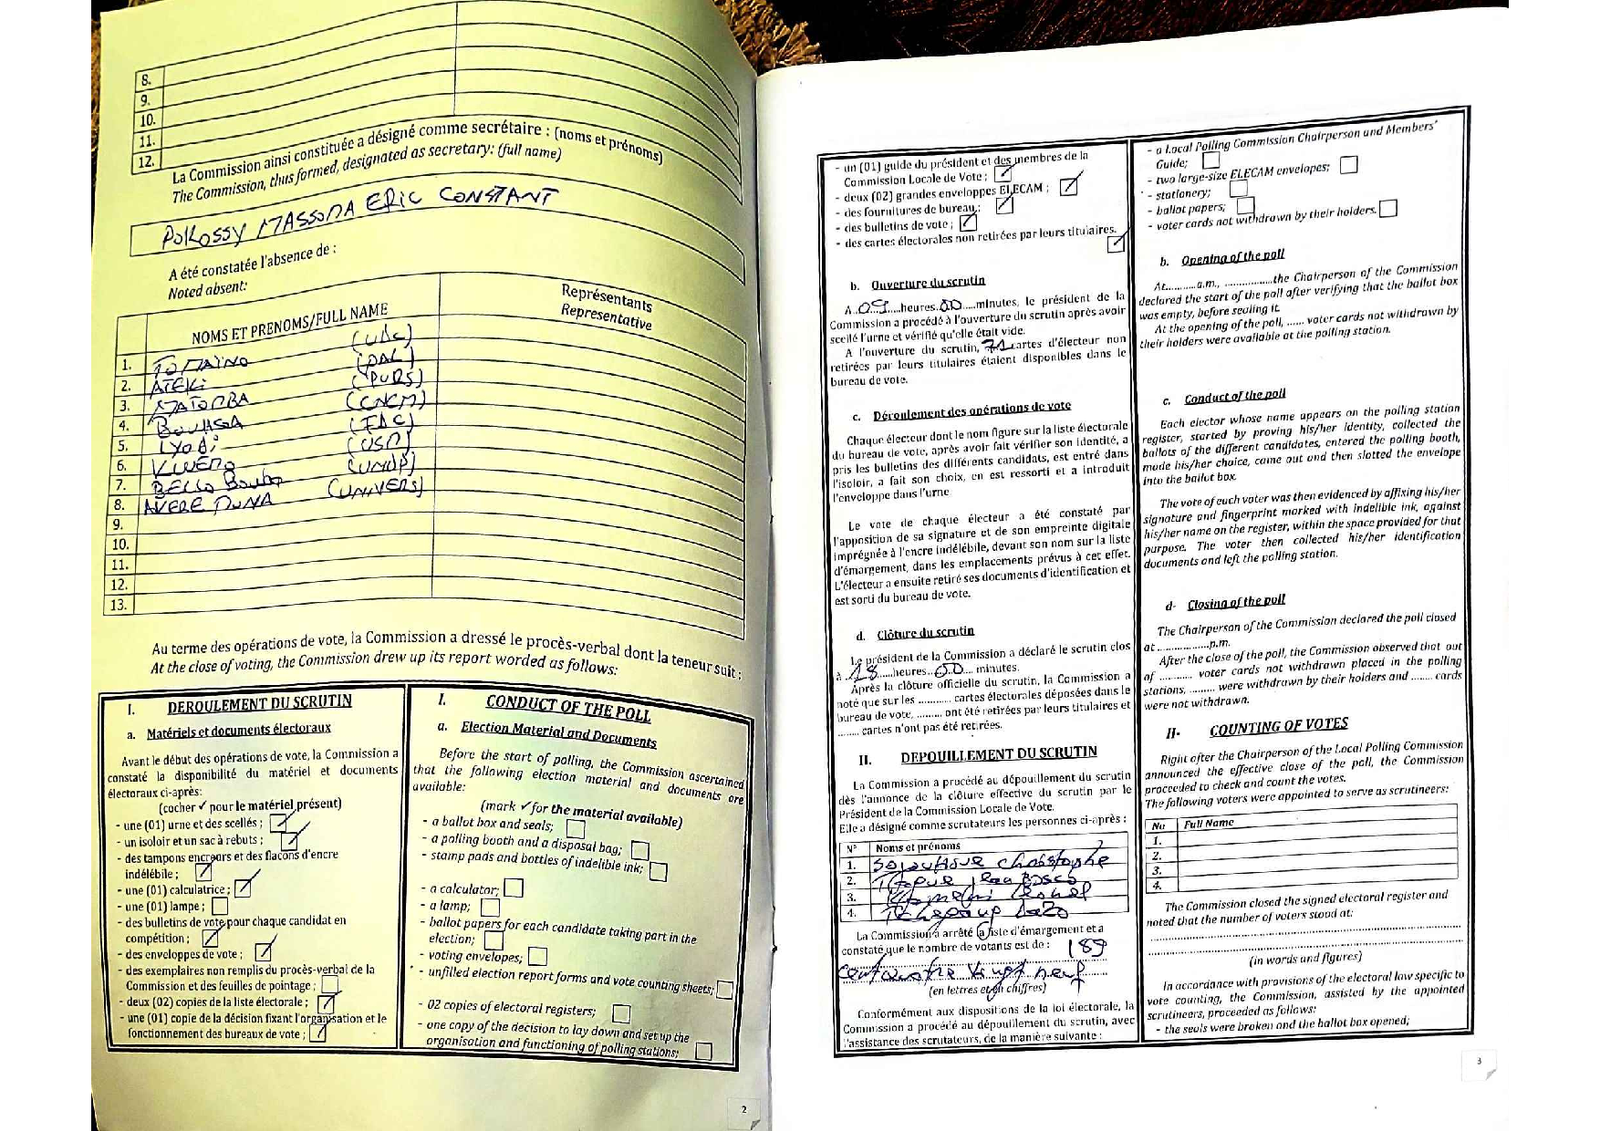 8.
9.
10.
11.
12.
La Commission ainsi constituée a désigné comme secrétaire : (noms et prénoms)
The Commission, thus formed, designated as secretary: (full name)
POKOSSY MASSOMA ERIC CONSTANT
A été constatée l'absence de :
Noted absent:
NOMS ET PRENOMS/FULL NAME
Représentants
Representative
1. TOMAINO (UDC)
2. ATEKI (PAL)
3. MATOMBA (PURS)
4. BOUHGA (CNCM)
5. IYODI (FDC)
6. KWEMO (USM)
7. BELLO Bouba (UNDP)
8. AVERE DUNA (UNIVERS)
9.
10.
11.
12.
13.
Au terme des opérations de vote, la Commission a dressé le procès-verbal dont la teneur suit :
At the close of voting, the Commission drew up its report worded as follows:
I. DEROULEMENT DU SCRUTIN
a. Matériels et documents électoraux
Avant le début des opérations de vote, la Commission a
constaté la disponibilité du matériel et documents
électoraux ci-après:
(cocher ✓ pour le matériel présent)
- une (01) urne et des scellés ;
- un isoloir et un sac à rebuts ;
- des tampons encreurs et des flacons d'encre
indélébile ;
- une (01) calculatrice ;
- une (01) lampe ;
- des bulletins de vote pour chaque candidat en
compétition ;
- des enveloppes de vote ;
- des exemplaires non remplis du procès-verbal de la
Commission et des feuilles de pointage ;
- deux (02) copies de la liste électorale ;
- une (01) copie de la décision fixant l'organisation et le
fonctionnement des bureaux de vote ;
I. CONDUCT OF THE POLL
a. Election Material and Documents
Before the start of polling, the Commission ascertained
that the following election material and documents are
available:
(mark ✓ for the material available)
- a ballot box and seals;
- a polling booth and a disposal bag;
- stamp pads and bottles of indelible ink;
- a calculator;
- a lamp;
- ballot papers for each candidate taking part in the
election;
- voting envelopes;
- unfilled election report forms and vote counting sheets;
- 02 copies of electoral registers;
- one copy of the decision to lay down and set up the
organisation and functioning of polling stations;
2
- un (01) guide du président et des membres de la
Commission Locale de Vote ;
- deux (02) grandes enveloppes ELECAM ;
- des fournitures de bureau ;
- des bulletins de vote ;
- des cartes électorales non retirées par leurs titulaires.
b. Ouverture du scrutin
A..09....heures.00.....minutes, le président de la
Commission a procédé à l'ouverture du scrutin après avoir
scellé l'urne et vérifié qu'elle était vide.
A l'ouverture du scrutin, 71 cartes d'électeur non
retirées par leurs titulaires étaient disponibles dans le
bureau de vote.
c. Déroulement des opérations de vote
Chaque électeur dont le nom figure sur la liste électorale
du bureau de vote, après avoir fait vérifier son identité, a
pris les bulletins des différents candidats, est entré dans
l'isoloir, a fait son choix, en est ressorti et a introduit
l'enveloppe dans l'urne
Le vote de chaque électeur a été constaté par
l'apposition de sa signature et de son empreinte digitale
imprégnée à l'encre indélébile, devant son nom sur la liste
d'émargement, dans les emplacements prévus à cet effet.
L'électeur a ensuite retiré ses documents d'identification et
est sorti du bureau de vote.
d. Clôture du scrutin
Le président de la Commission a déclaré le scrutin clos
à 18 heures..00... minutes.
Après la clôture officielle du scrutin, la Commission a
noté que sur les ........... cartes électorales déposées dans le
bureau de vote, ......... ont été retirées par leurs titulaires et
........ cartes n'ont pas été retirées.
II. DEPOUILLEMENT DU SCRUTIN
La Commission a procédé au dépouillement du scrutin
dès l'annonce de la clôture effective du scrutin par le
Président de la Commission Locale de Vote.
Elle a désigné comme scrutateurs les personnes ci-après :
N° Noms et prénoms
1. Christophe
2. Jean Bosco
3.
4.
La Commission a arrêté la liste d'émargement et a
constaté que le nombre de votants est de : 189
cent quatre vingt neuf
(en lettres et en chiffres)
Conformément aux dispositions de la loi électorale, la
Commission a procédé au dépouillement du scrutin, avec
l'assistance des scrutateurs, de la manière suivante :
- a Local Polling Commission Chairperson and Members'
Guide;
- two large-size ELECAM envelopes;
- stationery;
- ballot papers;
- voter cards not withdrawn by their holders.
b. Opening of the poll
At..........a.m., ................the Chairperson of the Commission
declared the start of the poll after verifying that the ballot box
was empty, before sealing it.
At the opening of the poll, ...... voter cards not withdrawn by
their holders were available at the polling station.
c. Conduct of the poll
Each elector whose name appears on the polling station
register, started by proving his/her identity, collected the
ballots of the different candidates, entered the polling booth,
made his/her choice, came out and then slotted the envelope
into the ballot box.
The vote of each voter was then evidenced by affixing his/her
signature and fingerprint marked with indelible ink, against
his/her name on the register, within the space provided for that
purpose. The voter then collected his/her identification
documents and left the polling station.
d- Closing of the poll
The Chairperson of the Commission declared the poll closed
at ................p.m.
After the close of the poll, the Commission observed that out
of .......... voter cards not withdrawn placed in the polling
stations, ......... were withdrawn by their holders and ........ cards
were not withdrawn.
II- COUNTING OF VOTES
Right after the Chairperson of the Local Polling Commission
announced the effective close of the poll, the Commission
proceeded to check and count the votes.
The following voters were appointed to serve as scrutineers:
No Full Name
1.
2.
3.
4.
The Commission closed the signed electoral register and
noted that the number of voters stood at:
(in words and figures)
In accordance with provisions of the electoral law specific to
vote counting, the Commission, assisted by the appointed
scrutineers, proceeded as follows:
- the seals were broken and the ballot box opened;
3